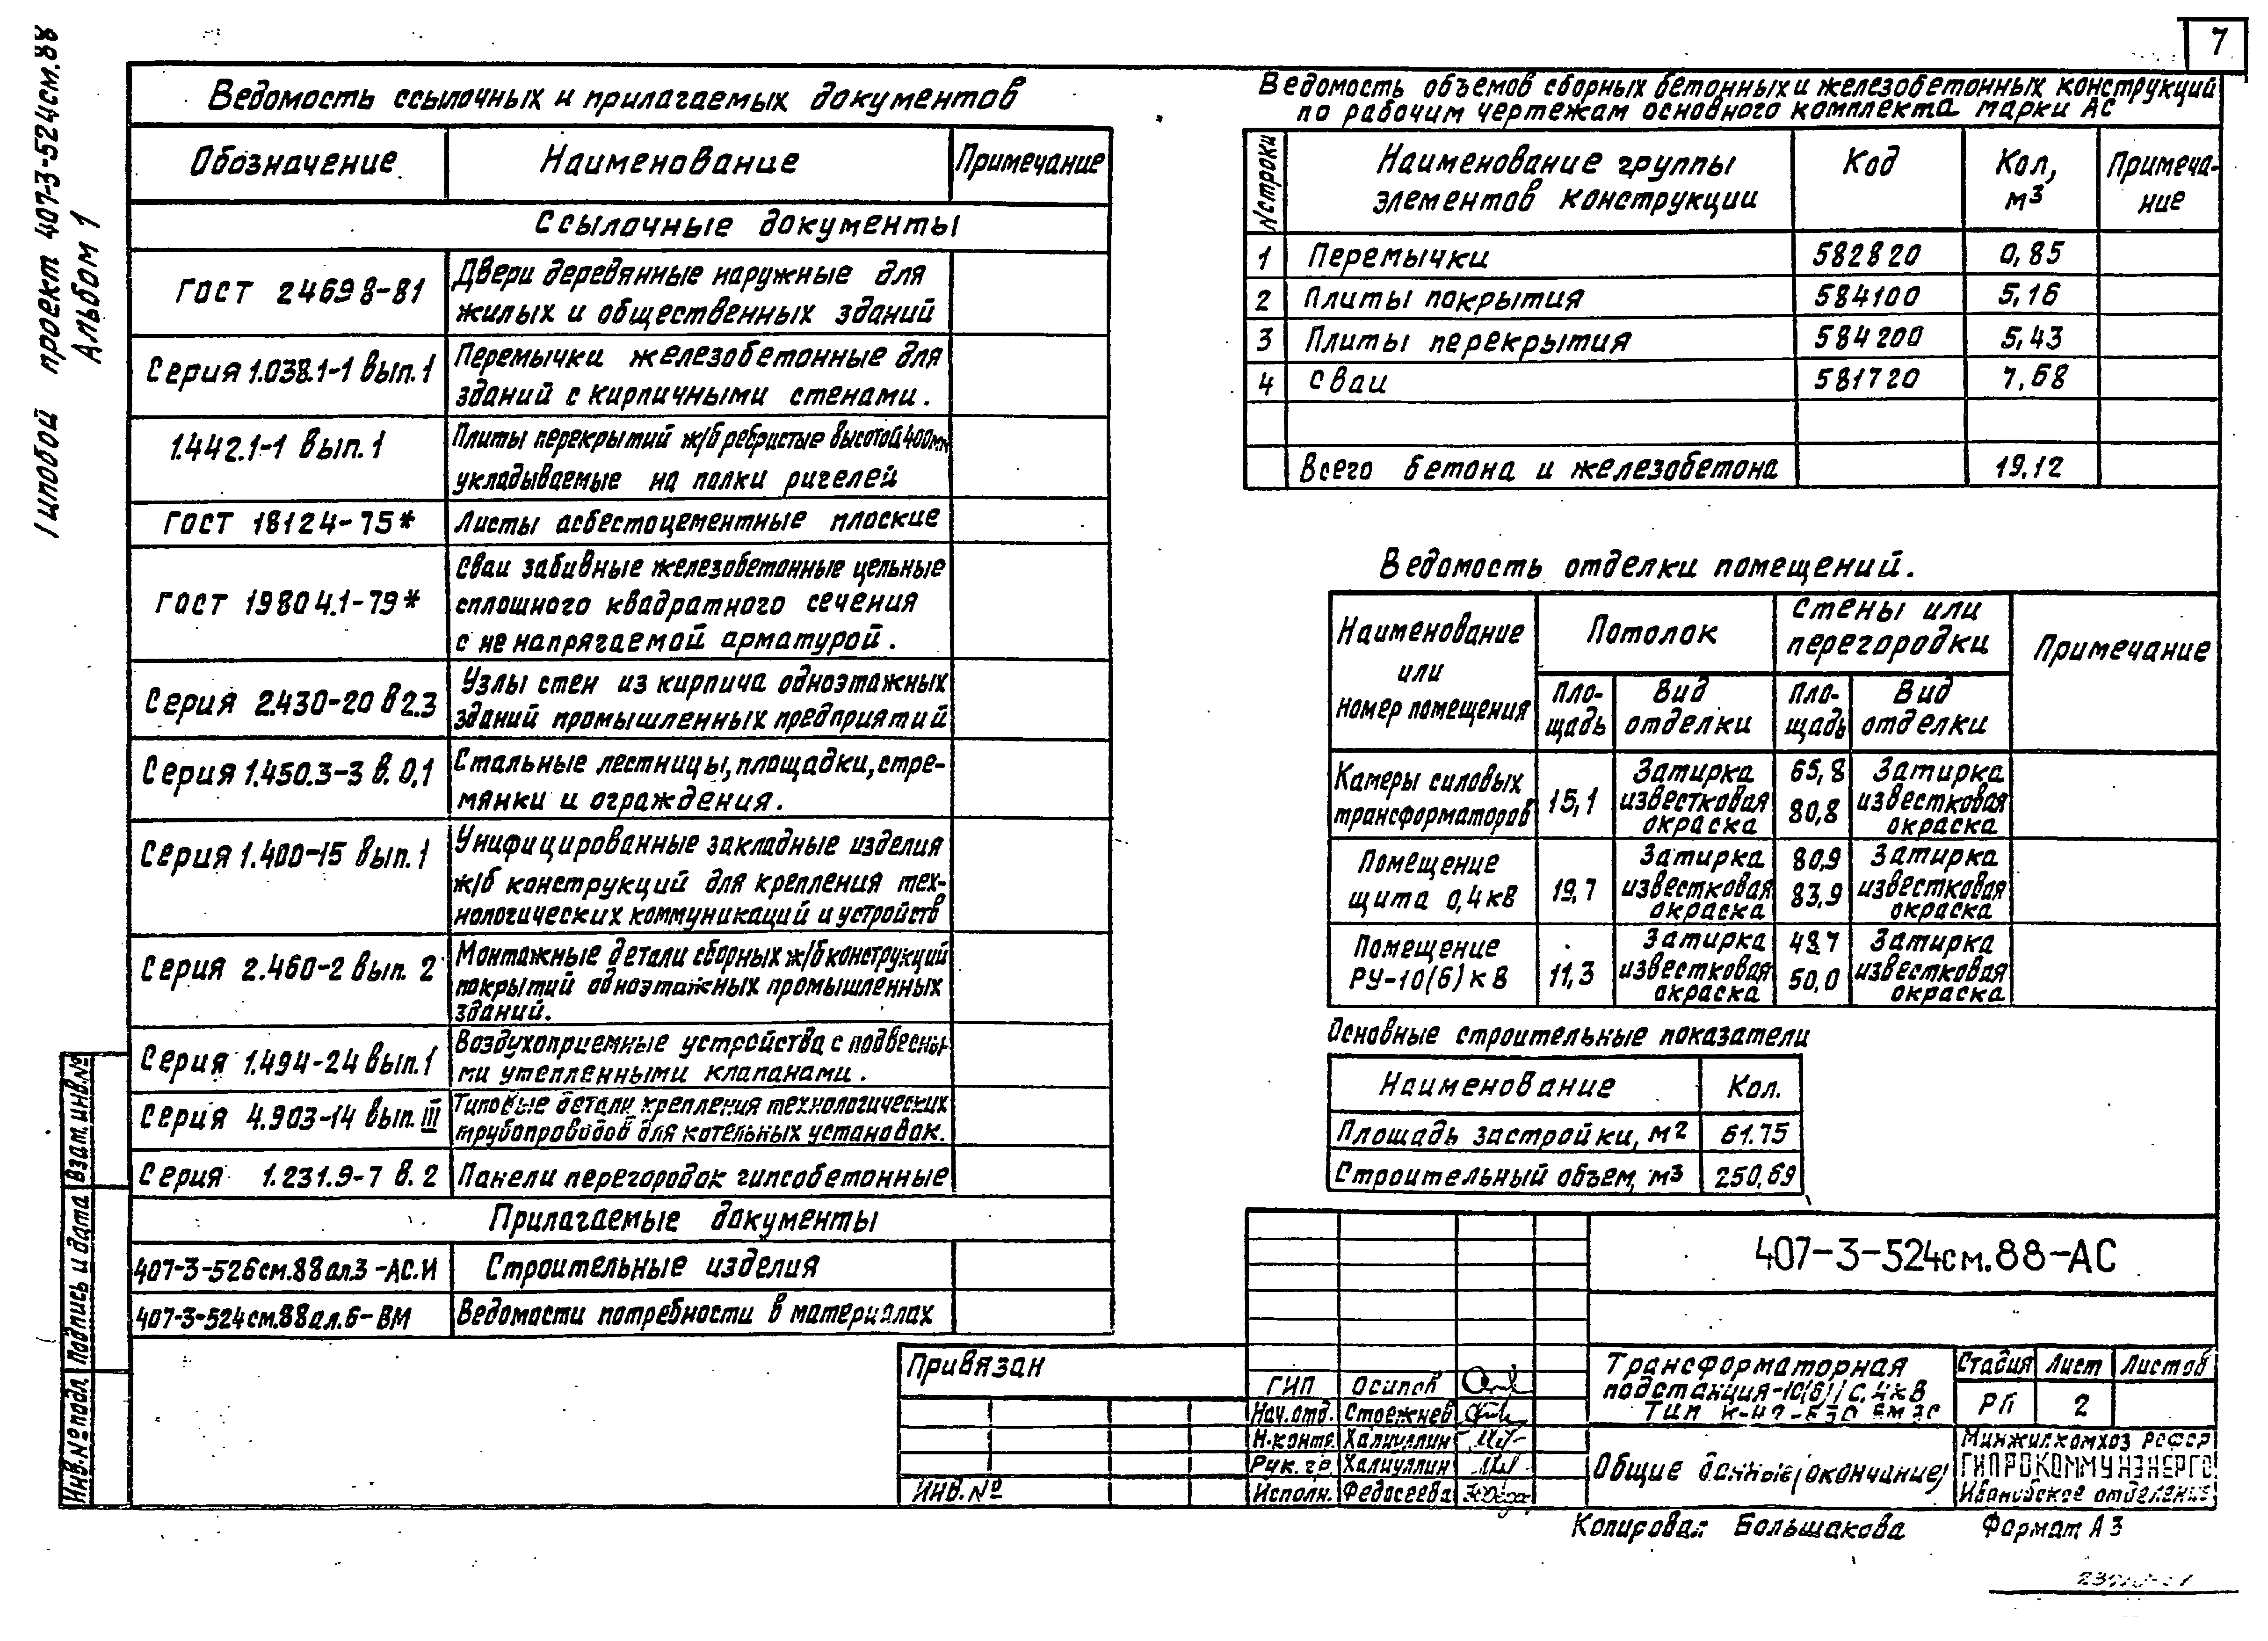 7
Типовой проект 407-3-524см.88
Альбом 1
Ведомость ссылочных и прилагаемых документов
Обозначение Наименование Примечание
Ссылочные документы
ГОСТ 24698-81 Двери деревянные наружные для
жилых и общественных зданий
Серия 1.038.1-1 вып.1 Перемычки железобетонные для
зданий с кирпичными стенами.
1.442.1-1 вып.1 Плиты перекрытий ж/б ребристые высотой 400мм
укладываемые на полки ригелей
ГОСТ 18124-75* Листы асбестоцементные плоские
ГОСТ 19804.1-79* Сваи забивные железобетонные цельные
сплошного квадратного сечения
с не напрягаемой арматурой.
Серия 2.430-20 в2.3 Узлы стен из кирпича одноэтажных
зданий промышленных предприятий
Серия 1.450.3-3 в. 0,1 Стальные лестницы, площадки, стре-
мянки и ограждения.
Серия 1.400-15 вып.1 Унифицированные закладные изделия
ж/б конструкций для крепления тех-
нологических коммуникаций и устройств
Серия 2.460-2 вып. 2 Монтажные детали сборных ж/б конструкций
покрытий одноэтажных промышленных
зданий.
Серия 1.494-24 вып.1 Воздухоприемные устройства с подвесны-
ми утепленными клапанами.
Серия 4.903-14 вып. III Типовые детали крепления технологических
трубопроводов для котельных установок.
Серия 1.231.9-7 в. 2 Панели перегородок гипсобетонные
Прилагаемые документы
407-3-526см.88 ал.3 -АС.И Строительные изделия
407-3-524см.88 ал.6-ВМ Ведомости потребности в материалах
Ведомость объемов сборных бетонных и железобетонных конструкций
по рабочим чертежам основного комплекта марки АС
N строки Наименование группы элементов конструкции Код Кол, м3 Примеча-
ние
1 Перемычки 582820 0,85
2 Плиты покрытия 584100 5,16
3 Плиты перекрытия 584200 5,43
4 Сваи 581720 7,68
Всего бетона и железобетона 19,12
Ведомость отделки помещений.
Наименование или номер помещения Потолок Стены или перегородки Примечание
Пло-
щадь Вид отделки Пло-
щадь Вид отделки
Камеры силовых трансформаторов 15,1 Затирка известковая окраска 65,8 80,8 Затирка известковая окраска
Помещение щита 0,4кВ 19,7 Затирка известковая окраска 80,9 83,9 Затирка известковая окраска
Помещение РУ-10(6)кВ 11,3 Затирка известковая окраска 48,7 50,0 Затирка известковая окраска
Основные строительные показатели
Наименование Кол.
Площадь застройки, м2 61.75
Строительный объем, м3 250,69
407-3-524см.88-АС
Привязан
Инв.№
ГИП Осипов
Нач.отд. Стоежнев
Н.контр. Халиуллин
Рук.гр. Халиуллин
Исполн. Федосеева
Трансформаторная
подстанция-10(6)/0,4кВ
Тип
Стадия Лист Листов
РП 2
Общие данные (окончание)
Минжилкомхоз РСФСР
ГИПРОКОММУНЭНЕРГО
Ивановское отделение
Инв.№ подл. Подпись и дата Взам.инв.№
Копировал Большакова Формат А3